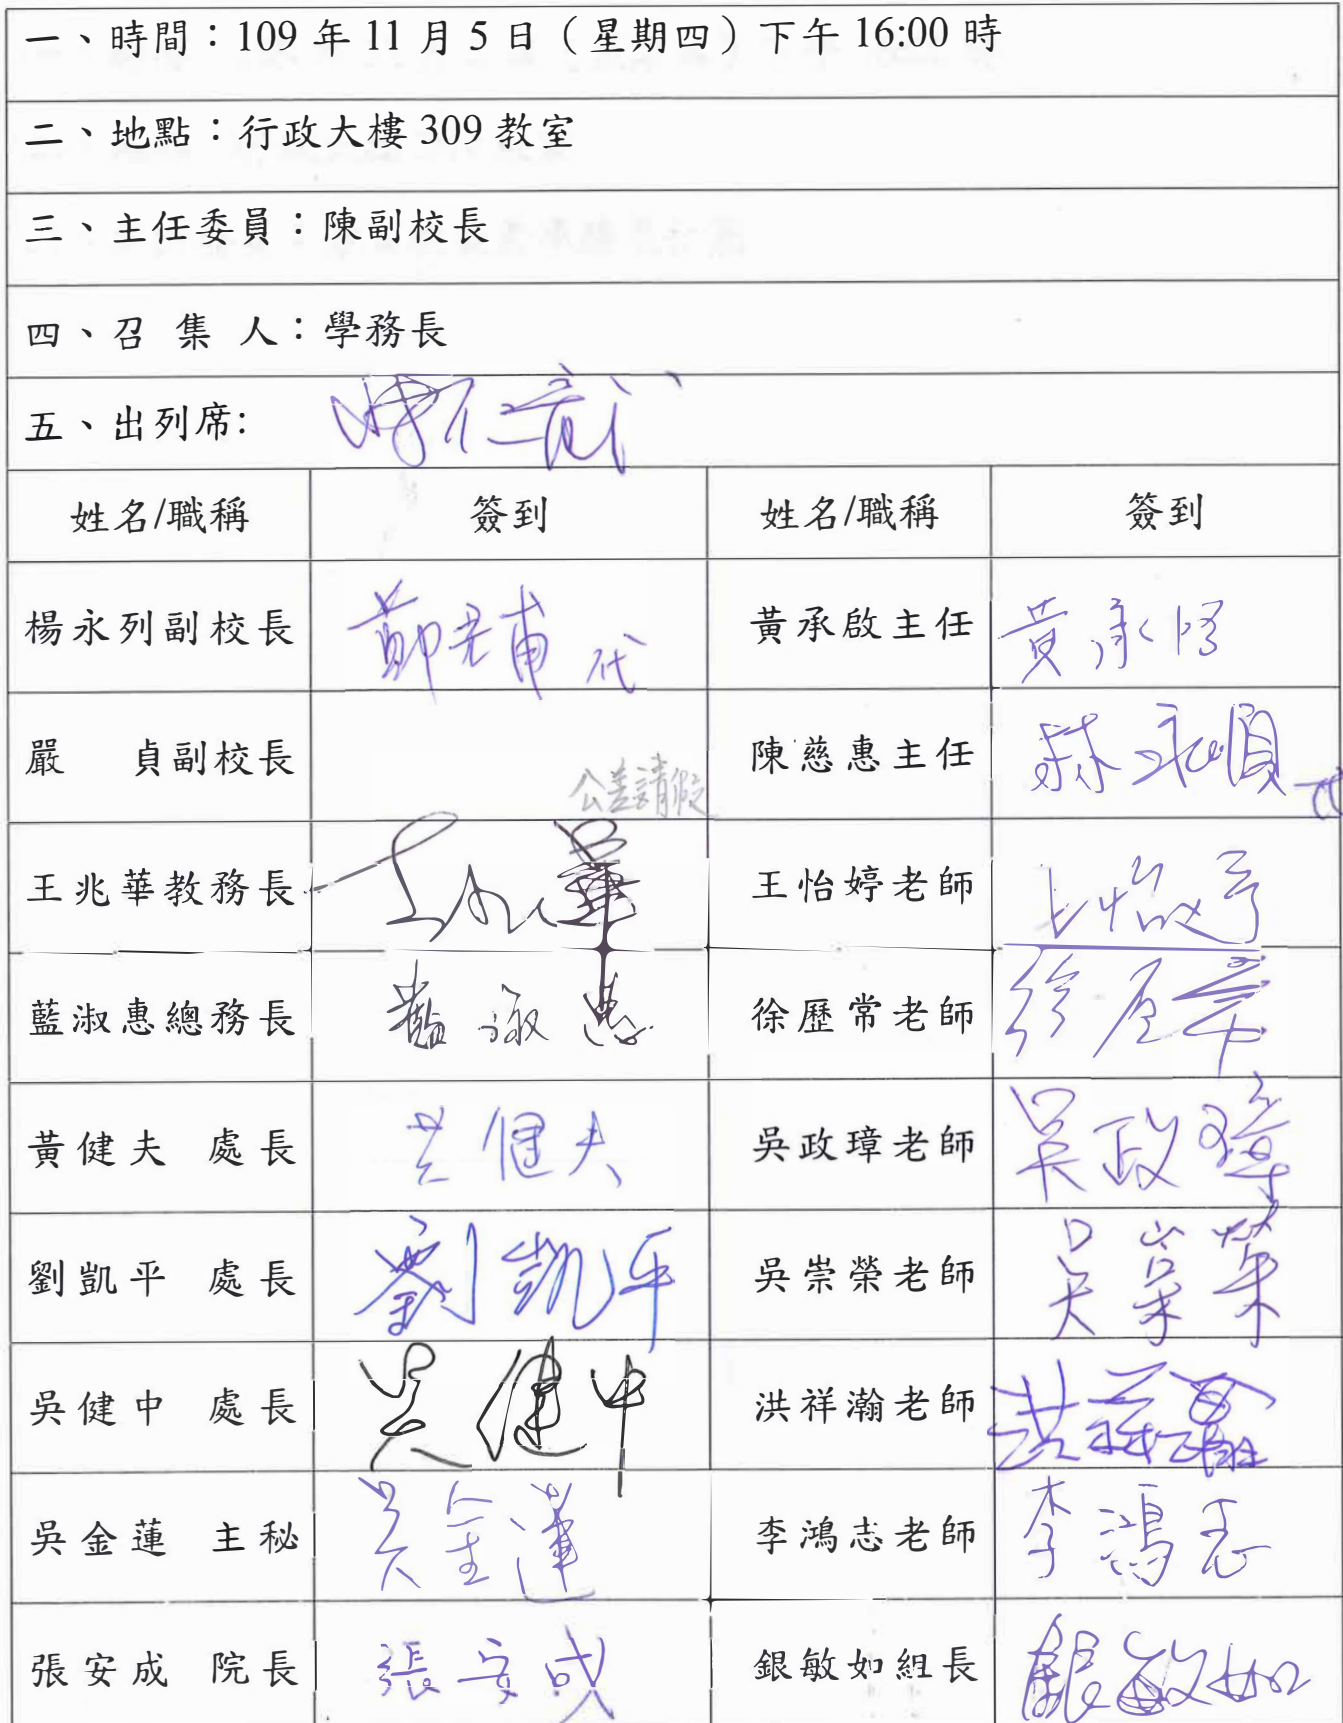 一、時間：109 年 11 月 5 日（星期四）下午 16:00 時
二、地點：行政大樓 309 教室
三、主任委員：陳副校長
四、召 集 人：學務長
五、出列席:
姓名/職稱 簽到 姓名/職稱 簽到
楊永列副校長 代 黃承啟主任 黃承啟
嚴 貞副校長 公差請假 陳慈惠主任 林永順 代
王兆華教務長 王兆華 王怡婷老師 王怡婷
藍淑惠總務長 藍淑惠 徐歷常老師 徐歷常
黃健夫 處長 黃健夫 吳政璋老師 吳政璋
劉凱平 處長 劉凱平 吳崇榮老師 吳崇榮
吳健中 處長 吳健中 洪祥瀚老師 洪祥瀚
吳金蓮 主秘 吳金蓮 李鴻志老師 李鴻志
張安成 院長 張安成 銀敏如組長 銀敏如